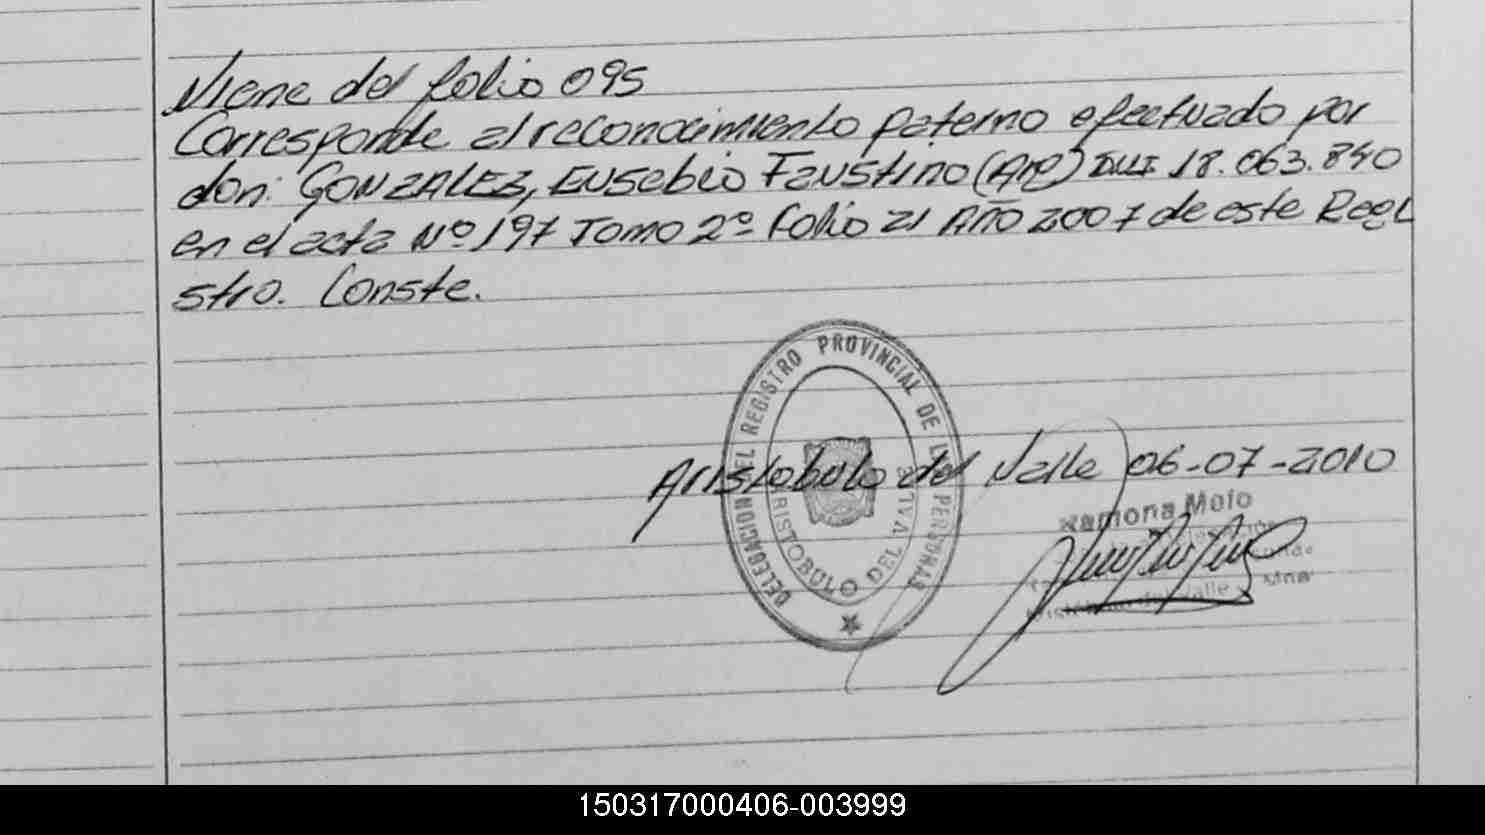 Viene del folio 095
Corresponde al reconocimiento paterno efectuado por
don: GONZALEZ, EUSEbio FAUStino (AR) DNI 18.063.840
en el acta Nº 197 Tomo 2º folio 21 AÑO 2007 de este Regi
stro. Conste.
DELEGACION DEL REGISTRO PROVINCIAL DE LAS PERSONAS
ARISTOBULO DEL VALLE
Aristobulo del Valle 06-07-2010
Ramona Melo
150317000406-003999